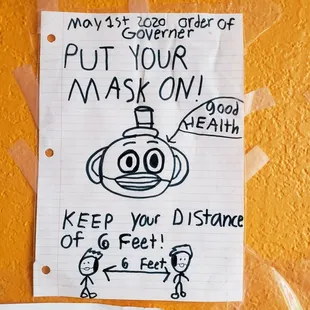 May 1st 2020 order of
Governer
PUT YOUR
MASK ON!
good
HEAlth
KEEP Your DIstance
of 6 Feet!
6 Feet